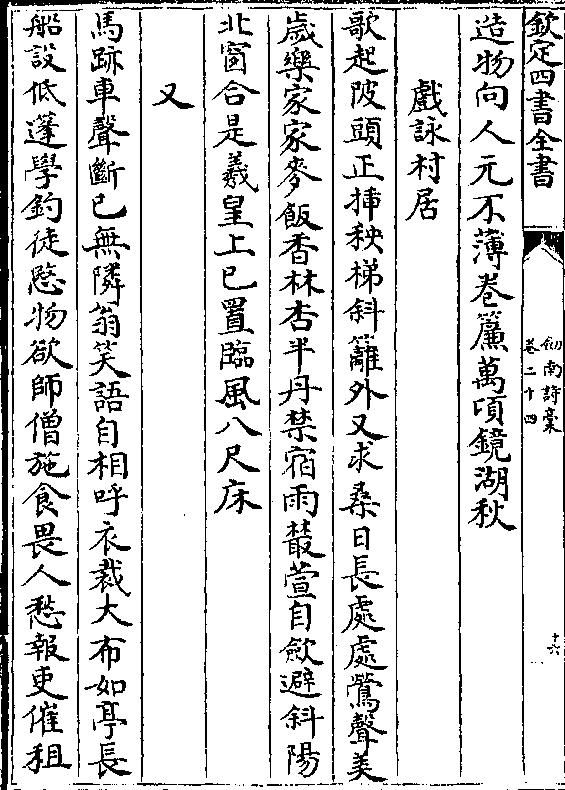 欽定四書全書
劒南詩稾
卷二十四
十六
造物向人元不薄卷簾萬頃鏡湖秋
戲詠村居
歌起陂頭正揷秧梯斜籬外又求桑日長處處鶯聲美
歳樂家家麥飯香林杏半丹禁宿雨叢萱自斂避斜陽
北窗合是羲皇上已置臨風八尺床
又
馬跡車聲斷已無隣翁笑語自相呼衣裁大布如亭長
船設低蓬學釣徒愍物欲師僧施食畏人愁報吏催租